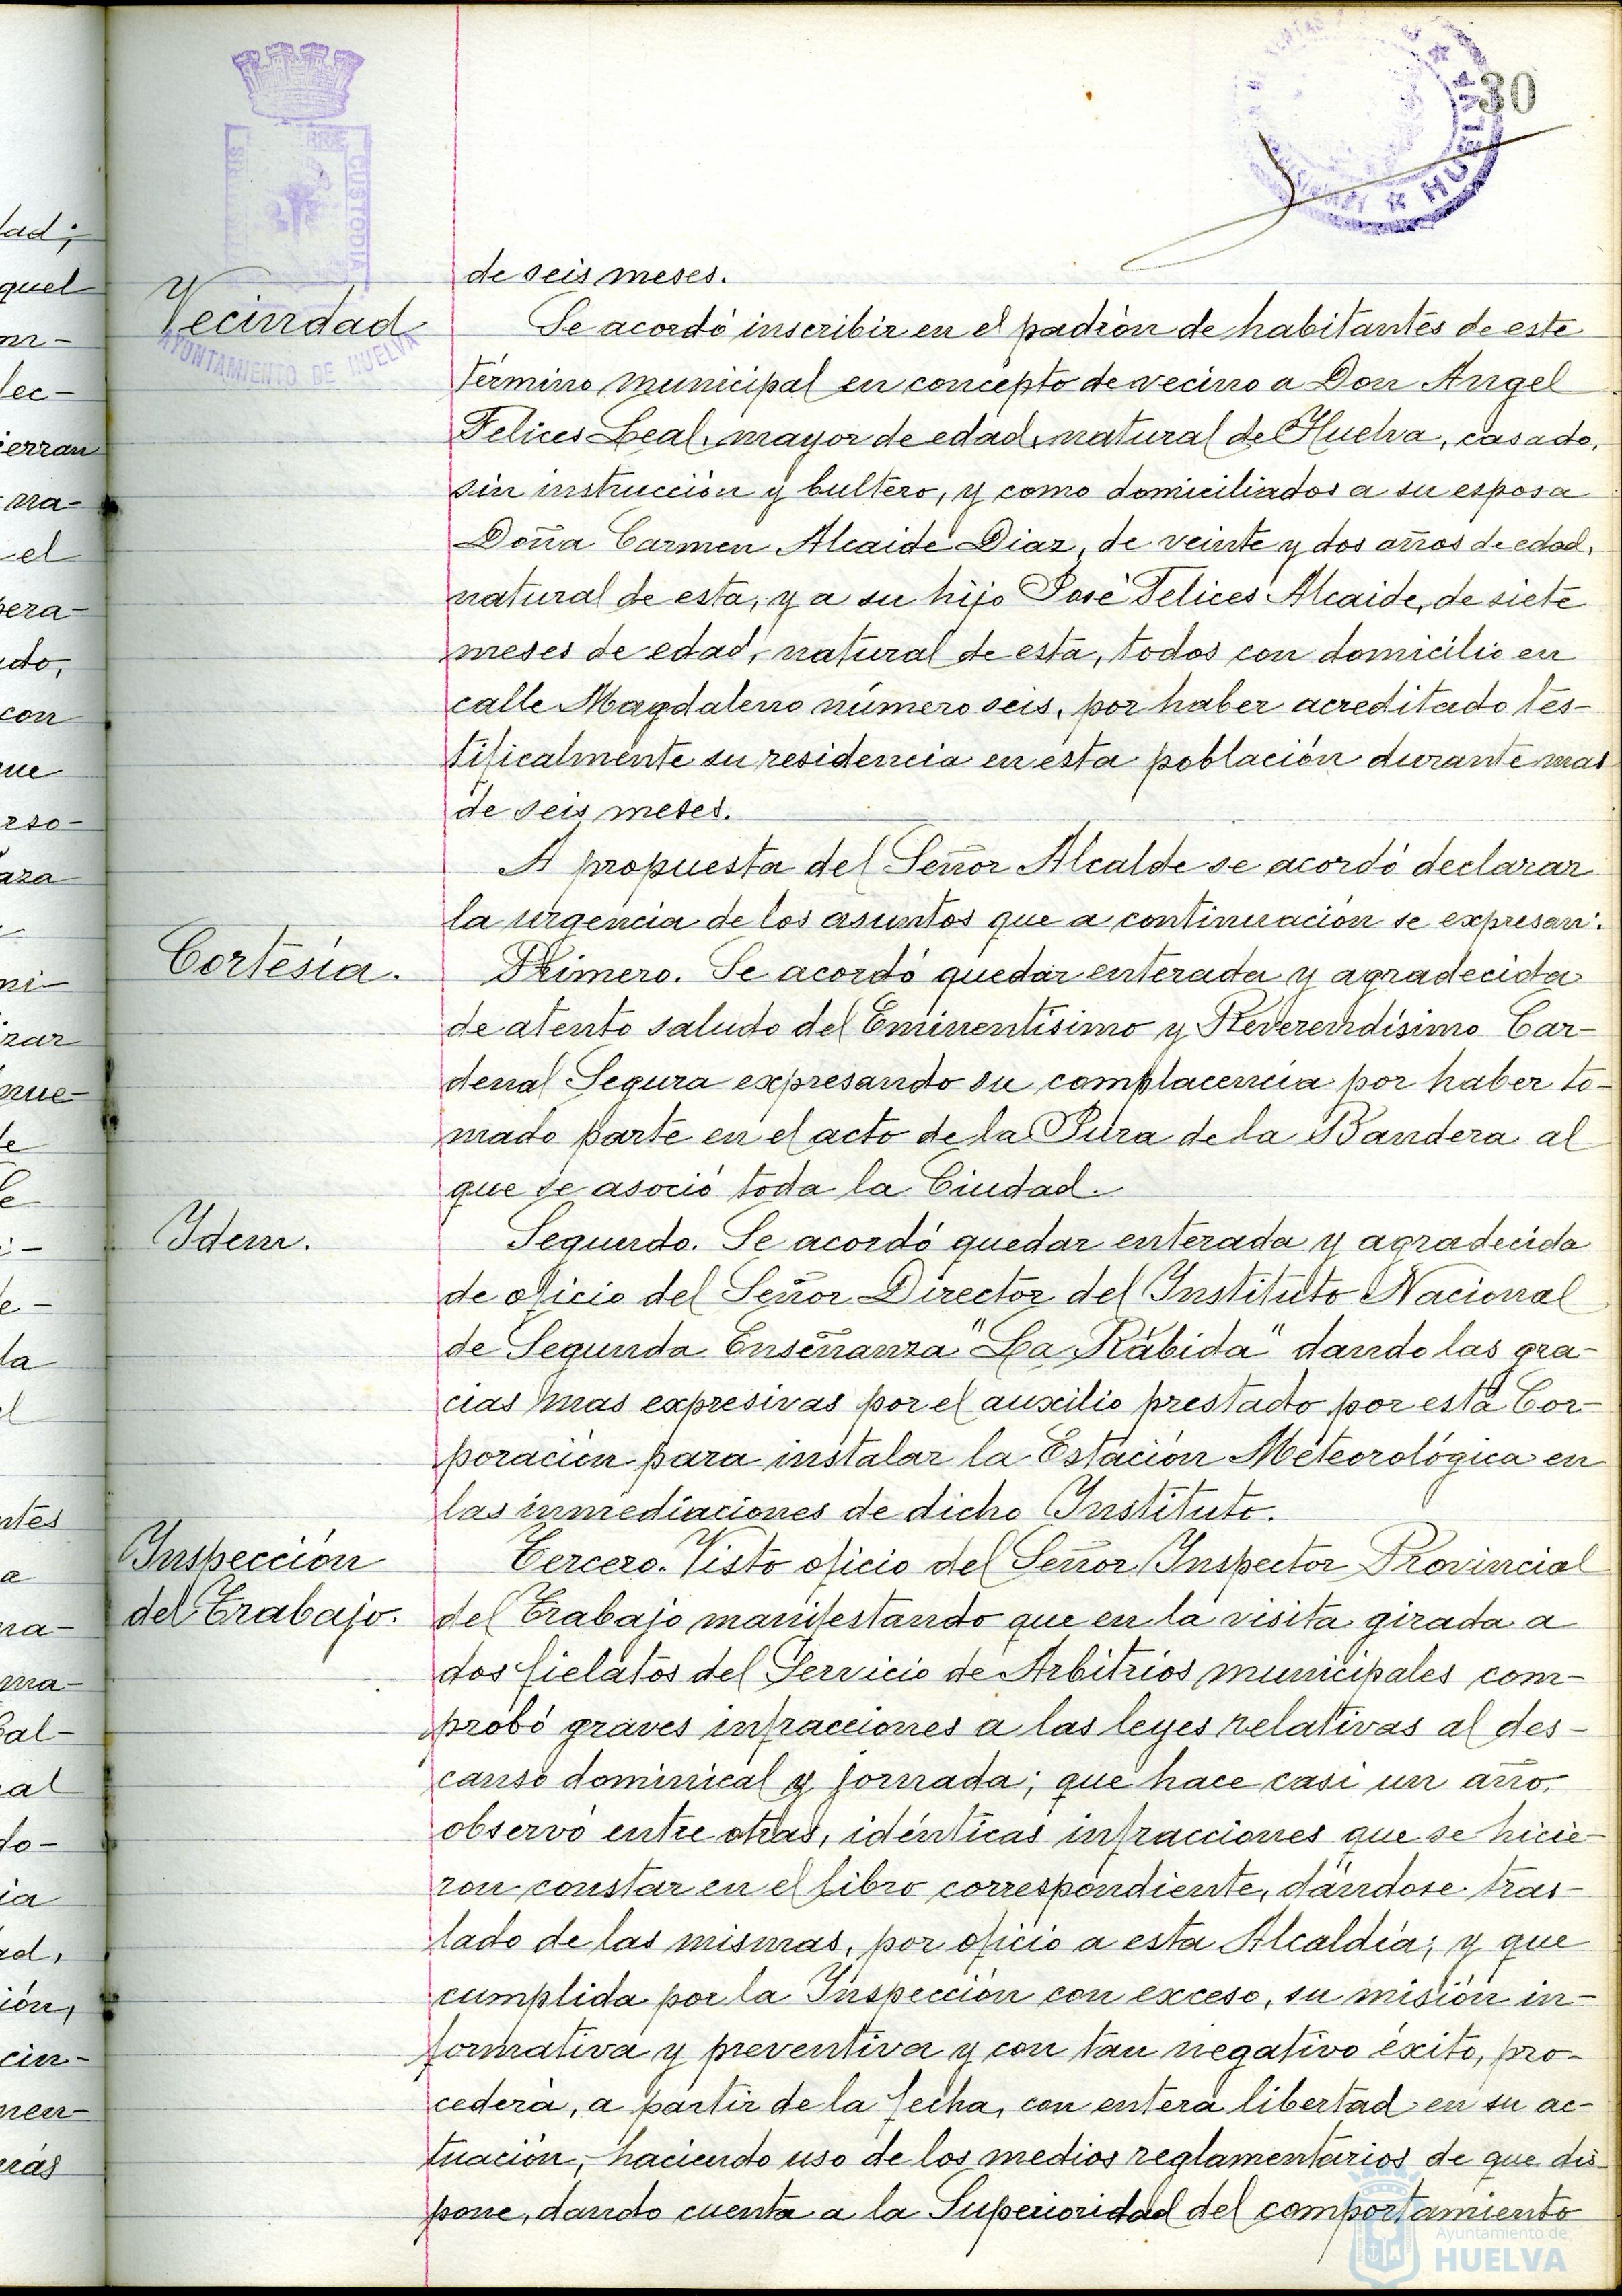 30
de seis meses.
Vecindad
Se acordó inscribir en el padrón de habitantes de este
término municipal en concepto de vecino a Don Angel
Felices Leal, mayor de edad, natural de Huelva, casado,
sin instrucción y bultero, y como domiciliados a su esposa
Doña Carmen Alcaide Diaz, de veinte y dos años de edad,
natural de esta, y a su hijo José Felices Alcaide, de siete
meses de edad, natural de esta, todos con domicilio en
calle Magdaleno número seis, por haber acreditado tes-
tificalmente su residencia en esta población durante mas
de seis meses.
A propuesta del Señor Alcalde se acordó declarar
la urgencia de los asuntos que a continuación se expresan:
Cortesía.
Primero. Se acordó quedar enterada y agradecida
de atento saludo del Eminentísimo y Reverendísimo Car-
denal Segura expresando su complacencia por haber to-
mado parte en el acto de la Pura de la Bandera al
que se asoció toda la Ciudad.
Idem.
Segundo. Se acordó quedar enterada y agradecida
de oficio del Señor Director del Instituto Nacional
de Segunda Enseñanza "La Rábida" dando las gra-
cias mas expresivas por el auxilio prestado por esta Cor-
poración para instalar la Estación Meteorológica en
las inmediaciones de dicho Instituto.
Inspección
del Trabajo.
Tercero. Visto oficio del Señor Inspector Provincial
del Trabajo manifestando que en la visita girada a
dos fielatos del Servicio de Arbitrios municipales com-
probó graves infracciones a las leyes relativas al des-
canso dominical y jornada; que hace casi un año,
observó entre otras, idénticas infracciones que se hicie-
ron constar en el libro correspondiente, dándose tras-
lado de las mismas, por oficio a esta Alcaldía; y que
cumplida por la Inspección con exceso, su misión in-
formativa y preventiva y con tan negativo éxito, pro-
cederá, a partir de la fecha, con entera libertad en su ac-
tuación, haciendo uso de los medios reglamentarios de que dis-
pone, dando cuenta a la Superioridad del comportamiento
AYUNTAMIENTO DE HUELVA
CUSTODIA
HUELVA
Ayuntamiento de
HUELVA